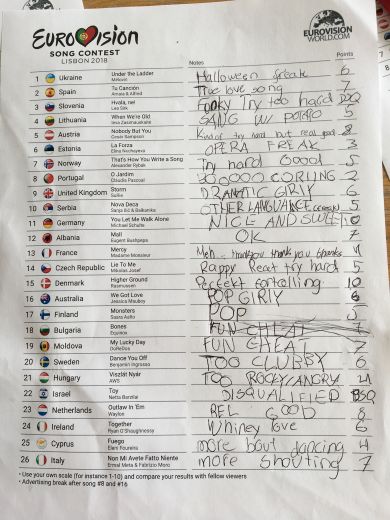 EUROVISION
SONG CONTEST
LISBON 2018
EUROVISION
WORLD.COM
Notes Points
1 Ukraine Under the Ladder Halloween freak 6
Mélovin
2 Spain Tu Canción True love song 7
Amaia & Alfred
3 Slovenia Hvala, ne! Try too hard
Lea Sirk
4 Lithuania When We're Old SANG W/ POTATO 5
Ieva Zasimauskaitė
5 Austria Nobody But You Kind of try hard but real good 8
Cesár Sampson
6 Estonia La Forza OPERA FREAK 3
Elina Nechayeva
7 Norway That's How You Write a Song Try hard Goood 5
Alexander Rybak
8 Portugal O Jardim 2
Cláudia Pascoal
9 United Kingdom Storm DRAMATIC GIRLY 6
SuRie
10 Serbia Nova Deca OTHER LANGUAGE 5
Sanja Ilić & Balkanika
11 Germany You Let Me Walk Alone NICE AND SWEET 10
Michael Schulte
12 Albania Mall OK 7
Eugent Bushpepa
13 France Mercy Meh. thank you thank you thanks 4
Madame Monsieur
14 Czech Republic Lie To Me Rappy Reat try hard 5
Mikolas Josef
15 Denmark Higher Ground 10
Rasmussen
16 Australia We Got Love POP GIRLY 6
Jessica Mauboy
17 Finland Monsters POP 5
Saara Aalto
18 Bulgaria Bones FUN CHEAT 7
Equinox
19 Moldova My Lucky Day FUN CHEAT 7
DoReDoS
20 Sweden Dance You Off TOO CLUBBY 6
Benjamin Ingrosso
21 Hungary Viszlát Nyár TOO ROCKY/ANGRY
AWS
22 Israel Toy DISQUALIFIED
Netta Barzilai
23 Netherlands Outlaw In 'Em REL GOOD 8
Waylon
24 Ireland Together Whiney love 6
Ryan O'Shaughnessy
25 Cyprus Fuego more bout dancing 4
Eleni Foureira
26 Italy Non Mi Avete Fatto Niente more shouting 7
Ermal Meta & Fabrizio Moro
• Use your own scale (for instance 1-10) and compare your results with fellow viewers
• Advertising break after song #8 and #16